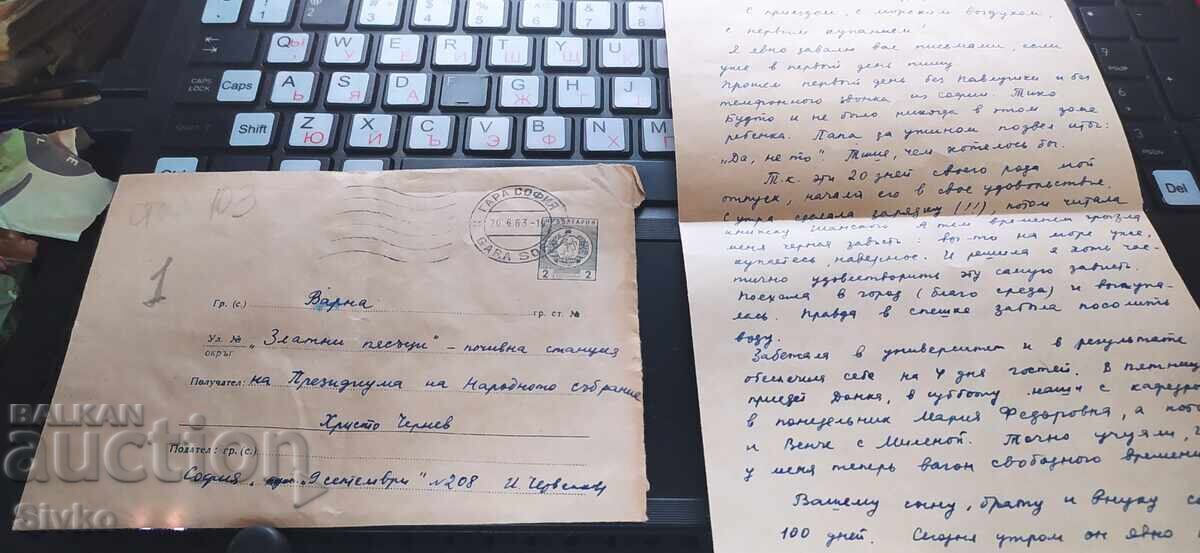 ГАРА СОФИЯ
20.6.63
GARA SO
БЪЛГАРИЯ
2 2
103
1
Гр. (с.) Варна
гр. ст. №
Ул. №
окръг „Златни песъци" – почивна станция
Получател: на Президиума на Народното събрание
Христо Чернев
Подател: гр. (с.)
София, „9 септември" №208 И. Червенкову
С приездом, с морским воздухом,
с первым купанием!
Я явно завалю вас письмами, если
уже в первый день пишу.
Прошел первый день без Павлушки и без
телефонного звонка из Софии. Тихо
будто и не было никогда в этом доме
ребенка. Папа за ужином позвел
„Да, не то" Тише, чем хотелось бы.
Т.к. эти 20 дней своего рода мой
отпуск, начала его в свое удовольствие.
С утра сделала зарядку (!!!), потом читала
книжку А тем временем грызла
меня черная зависть: вот-то на море уже,
купаетесь, наверное. И решила я хоть час-
тично удовлетворить эту самую зависть.
Поехала в город (благо среда) и выкупа-
лась. Правда в спешке забыла посолить
воду.
Забежала в университет и в результате
обеспечила себе на 4 дня гостей. В пятницу
приедет Донка, в субботу Маши с кафедры
в понедельник Мария Федоровна, а пот
и Венче с Миленой. Точно учуяли, ч
у меня теперь вагон свободного времени
Вашему сыну, брату и внуку се
100 дней. Сегодня утром он явно
CAPS LOCK
Caps
Shift
Del
Q Я
A Ь
S Я
D А
G Ж
H Г
Z Ю
X Й
C Ъ
V Э
B Ф
N Х
BALKAN
auction
Sivko